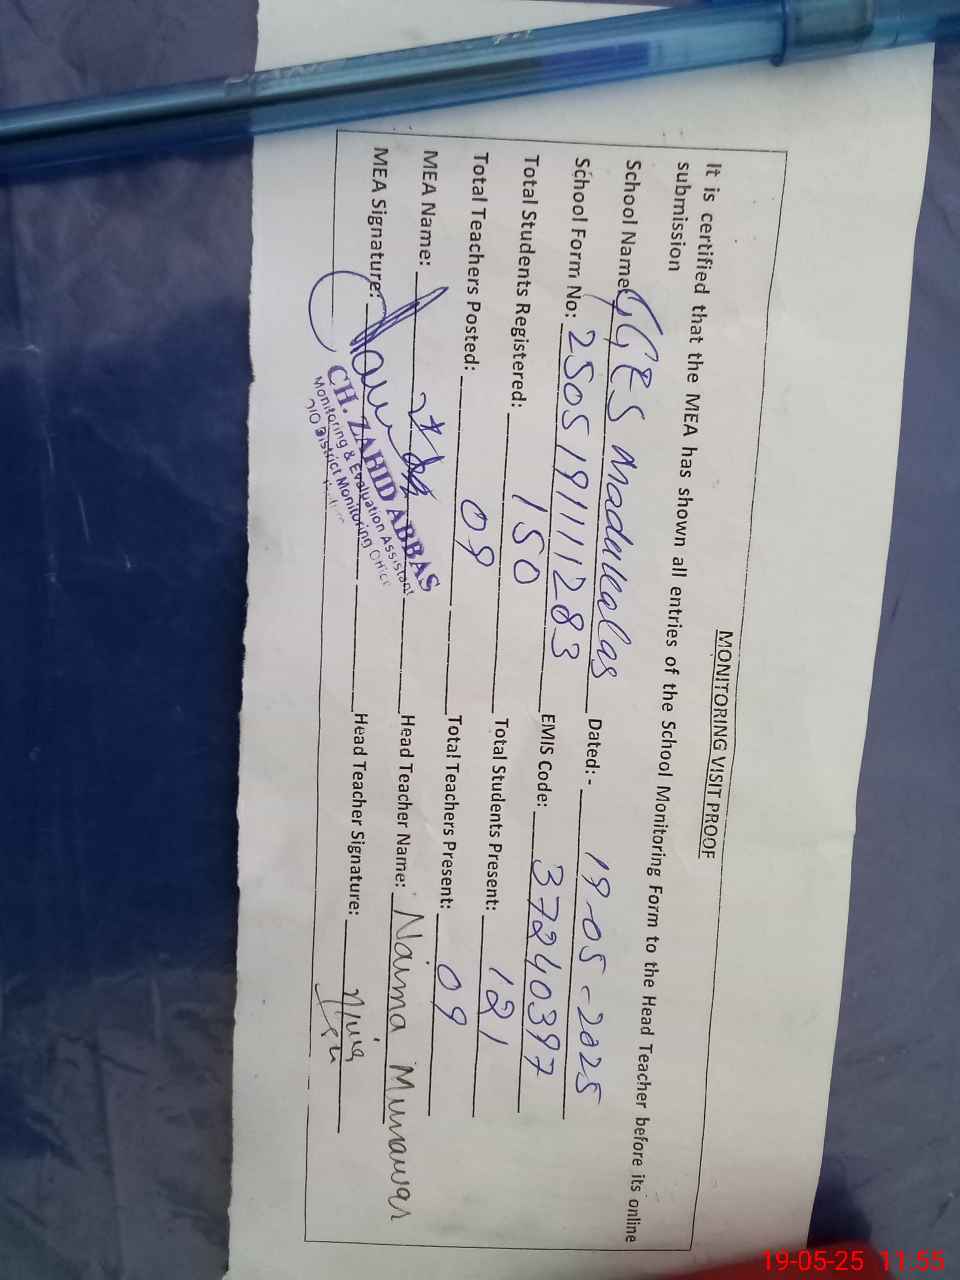 MONITORING VISIT PROOF
It is certified that the MEA has shown all entries of the School Monitoring Form to the Head Teacher before its online
submission
School Name: GGES Dated: - 19-05-2025
School Form No: 25051911111283 EMIS Code: 37240397
Total Students Registered: 150 Total Students Present: 121
Total Teachers Posted: 09 Total Teachers Present: 09
MEA Name: Head Teacher Name: Naima Munawar
MEA Signature: Head Teacher Signature:
CH. ZAHID ABBAS
Monitoring & Evaluation Assistant
O/O District Monitoring Office
19-05-25 11:55